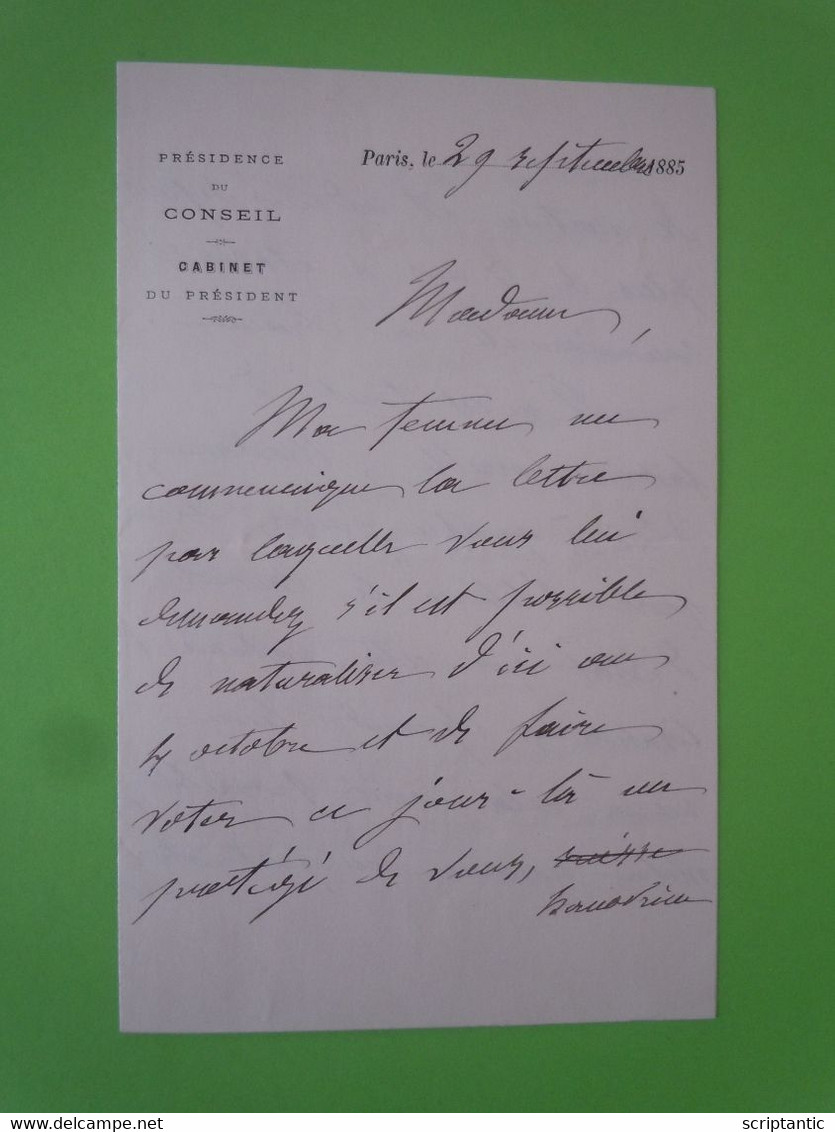 PRÉSIDENCE
DU
CONSEIL
CABINET
DU PRÉSIDENT
Paris, le 29 septembre 1885
Madame,
Ma femme me
communique la lettre
par laquelle vous lui
demandez s'il est possible
de naturaliser d'ici au
4 octobre et de faire
voter ce jour-là un
protégé de vous, suisse
hanovrien
delcampe.net
scriptantic